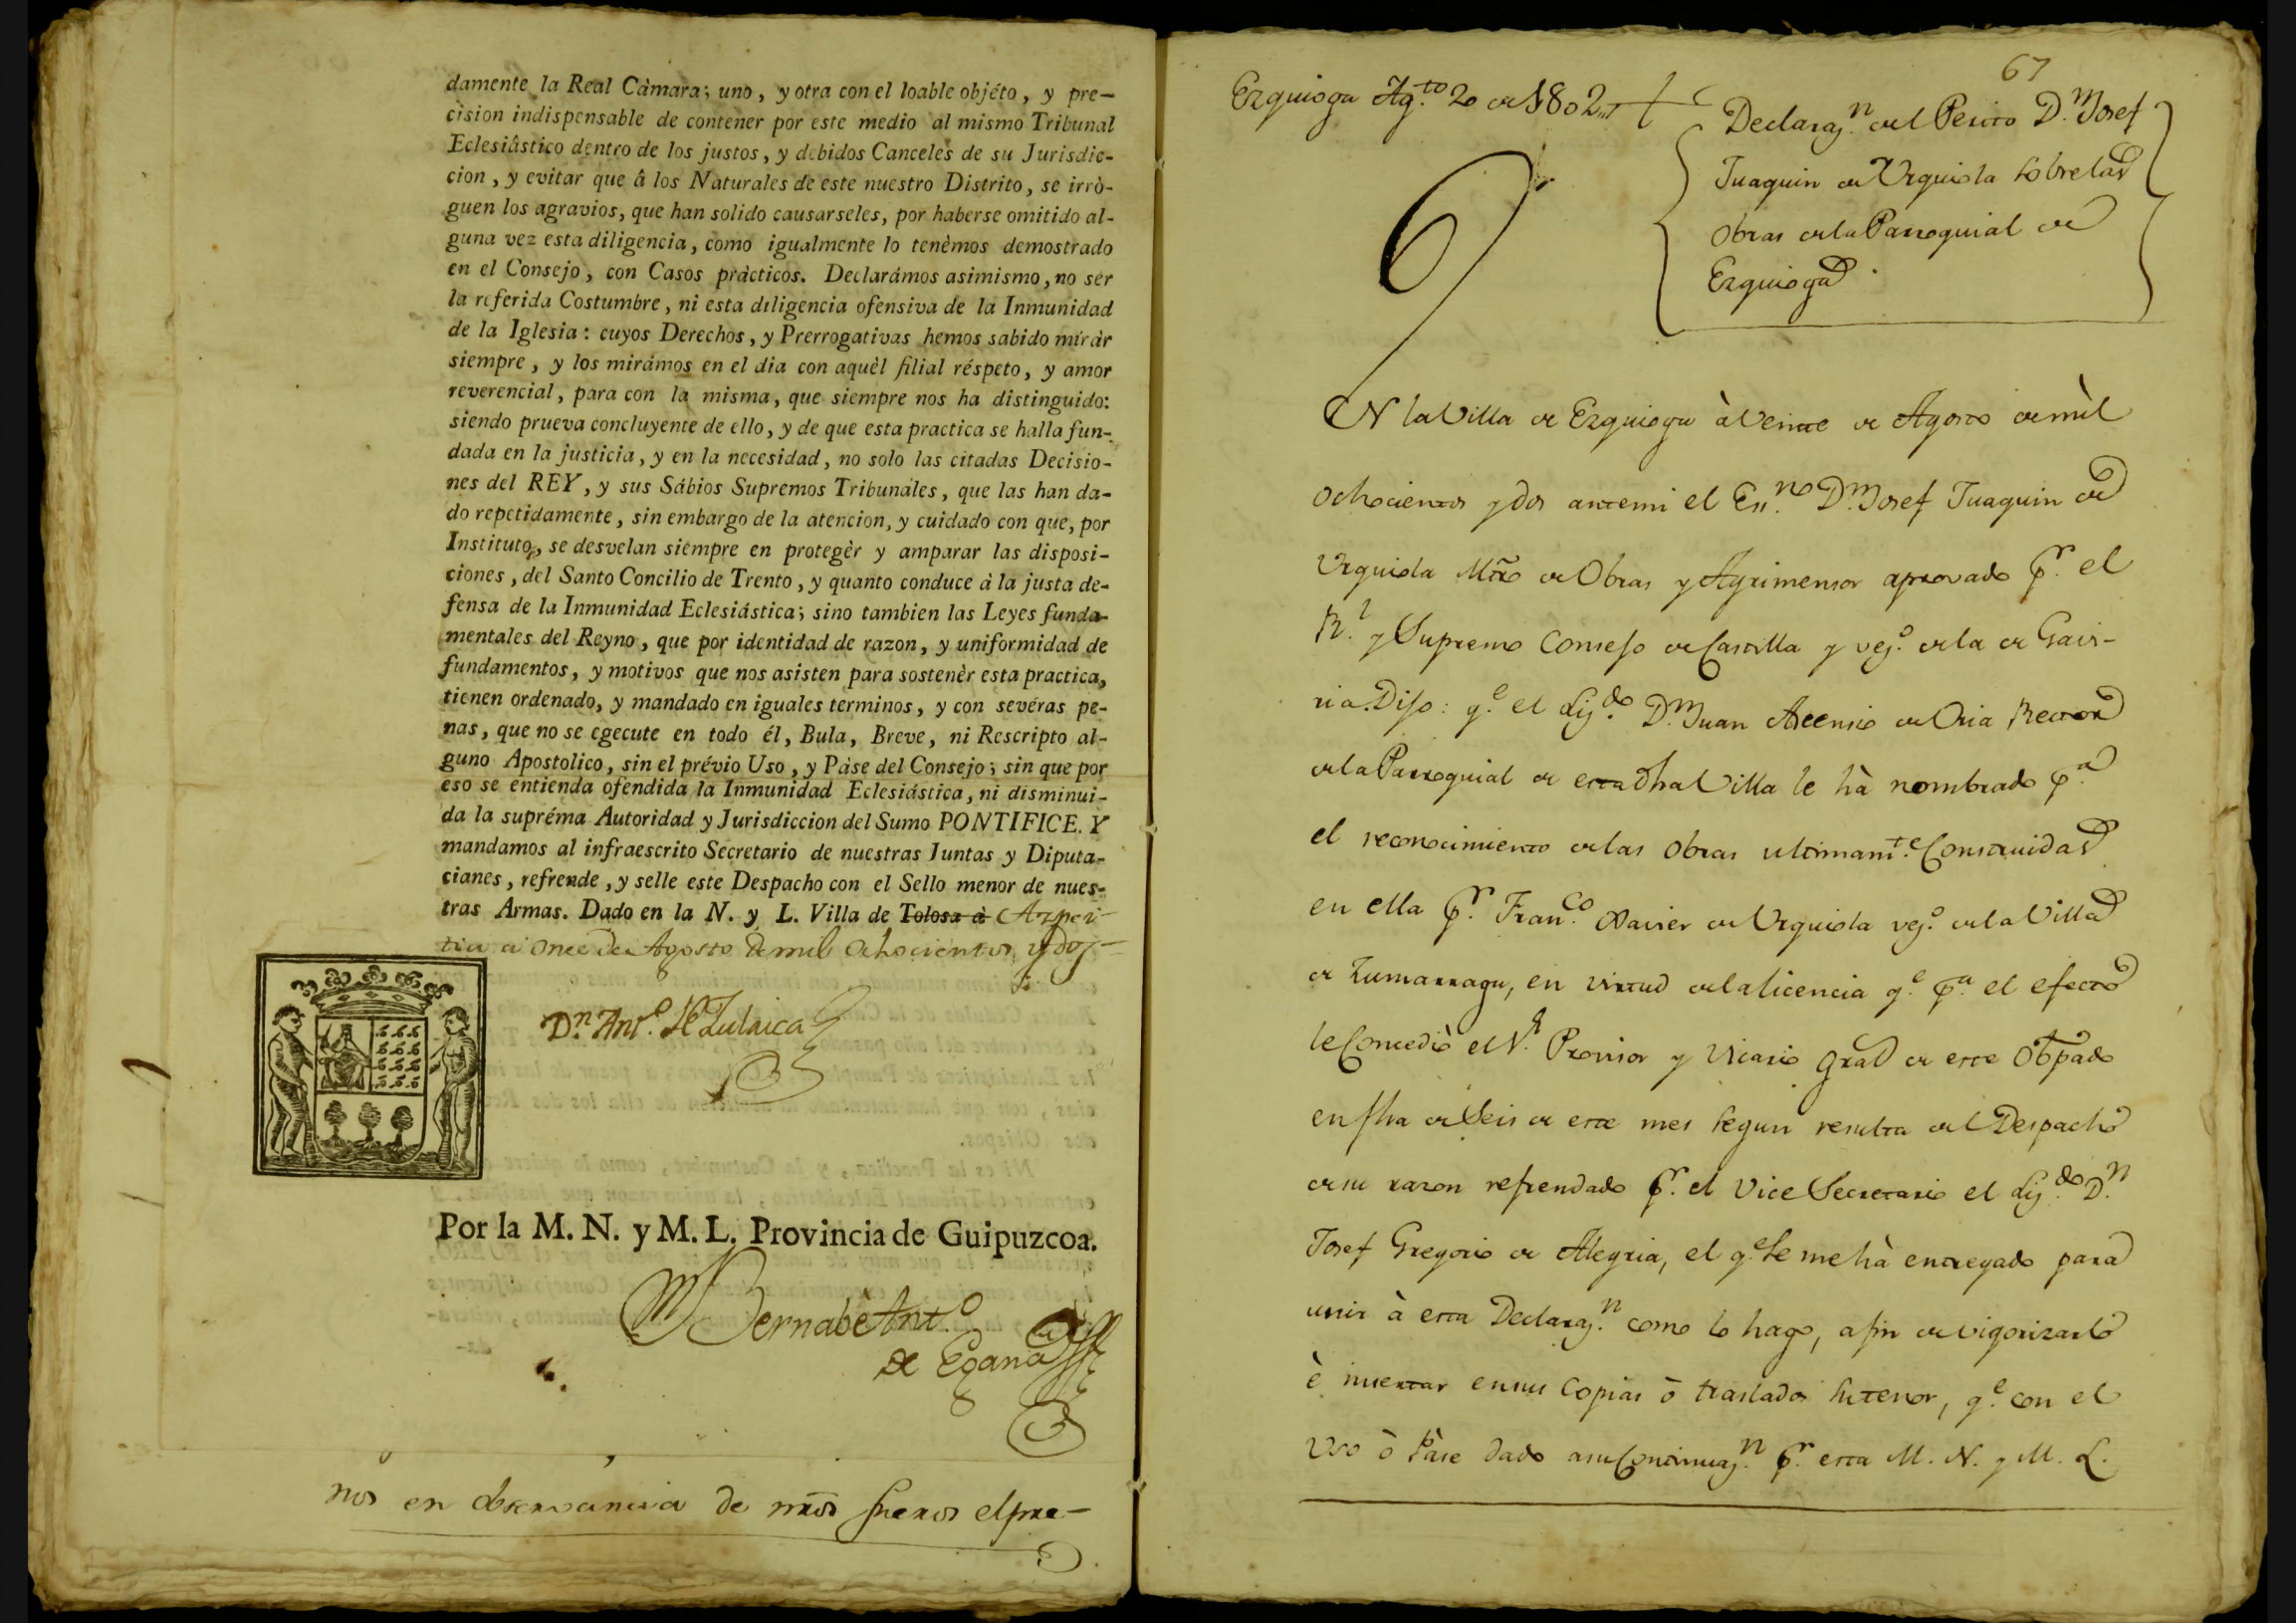 damente la Real Càmara; uno, y otra con el loable objéto, y pre-
cision indispensable de contener por este medio al mismo Tribunal
Eclesiâstico dentro de los justos, y debidos Canceles de su Jurisdic-
cion, y evitar que â los Naturales de este nuestro Distrito, se irrò-
guen los agravios, que han solido causarseles, por haberse omitido al-
guna vez esta diligencia, como igualmente lo tenèmos demostrado
en el Consejo, con Casos pràcticos. Declarámos asimismo, no sér
la referida Costumbre, ni esta diligencia ofensiva de la Inmunidad
de la Iglesia: cuyos Derechos, y Prerrogativas hemos sabido miràr
siempre, y los mirámos en el dia con aquèl filial réspeto, y amor
reverencial, para con la misma, que siempre nos ha distinguido:
siendo prueva concluyente de ello, y de que esta practica se halla fun-
dada en la justicia, y en la necesidad, no solo las citadas Decisio-
nes del REY, y sus Sábios Supremos Tribunales, que las han da-
do repetidamente, sin embargo de la atencion, y cuidado con que, por
Instituto, se desvelan siempre en protegèr y amparar las disposi-
ciones, del Santo Concilio de Trento, y quanto conduce à la justa de-
fensa de la Inmunidad Eclesiástica; sino tambien las Leyes funda-
mentales del Reyno, que por identidad de razon, y uniformidad de
fundamentos, y motivos que nos asisten para sostenèr esta practica,
tienen ordenado, y mandado en iguales terminos, y con sevéras pe-
nas, que no se egecute en todo él, Bula, Breve, ni Rescripto al-
guno Apostolico, sin el prévio Uso, y Pase del Consejo; sin que por
eso se entienda ofendida la Inmunidad Eclesiástica, ni disminui-
da la supréma Autoridad y Jurisdiccion del Sumo PONTIFICE. Y
mandamos al infraescrito Secretario de nuestras Juntas y Diputa-
cianes, refrende, y selle este Despacho con el Sello menor de nues-
tras Armas. Dado en la N. y L. Villa de Tolosa à Azpei-
tia a once de Agosto de mil ochocientos y dos
Dn. Anto. de Zulaica
Por la M. N. y M. L. Provincia de Guipuzcoa.
Bernabè Anto.
de Egaña
nos en observancia de nros fueros el pre-
67
Ezquioga Agto. 20 de 1802
Declarazn. del Perito Dn. Josef
Juaquin de Urquiola sobre las
Obras de la Parroquial de
Ezquioga.
6
EN la Villa de Ezquioga à Veinte de Agosto de mil
ochocientos y dos ante mi el Essno. Dn. Josef Juaquin de
Urquiola Mtro de Obras y Agrimensor aprovado pr. el
Rl. y Supremo Consejo de Castilla y vezo. de la de Gavi-
ria. Dijo: qe. el Lizdo. Dn. Juan Ascensio de Oria Rector
de la Parroquial de esta dha Villa le hà nombrado pa.
el reconocimiento de las Obras ultimamte. Construidas
en ella pr. Franco. Xavier de Urquiola vezo. de la Villa
de Zumarraga, en virtud de la licencia qe. pa. el efecto
le Concediò el Sr. Provisor y Vicario Gral de este Obpado
en fha de Seis de este mes segun resulta del Despacho
de su razon refrendado pr. el Vice Secretario el Lizdo. Dn.
Josef Gregorio de Alegria, el qe. se me hà entregado para
unir à esta Declarazn. como lo hago, afin de vigorizarlo
è insertar en sus Copias ò traslados su tenor, qe. con el
Uso ò Pàse dado a su Continuazn. pr. esta M. N. y M. L.